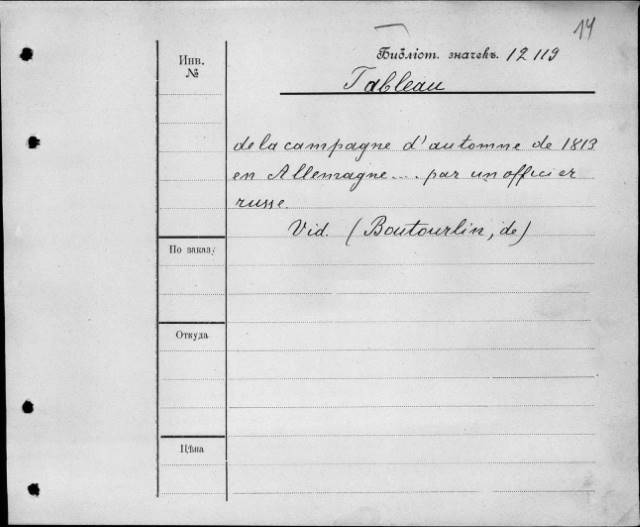 14
Инв.
№
Библіот. значекъ. 12119
Tableau
de la campagne d'automne de 1813
en Allemagne.... par un officier
russe.
Vid. (Boutourlin, de)
По заказ/
Откуда
Цѣна